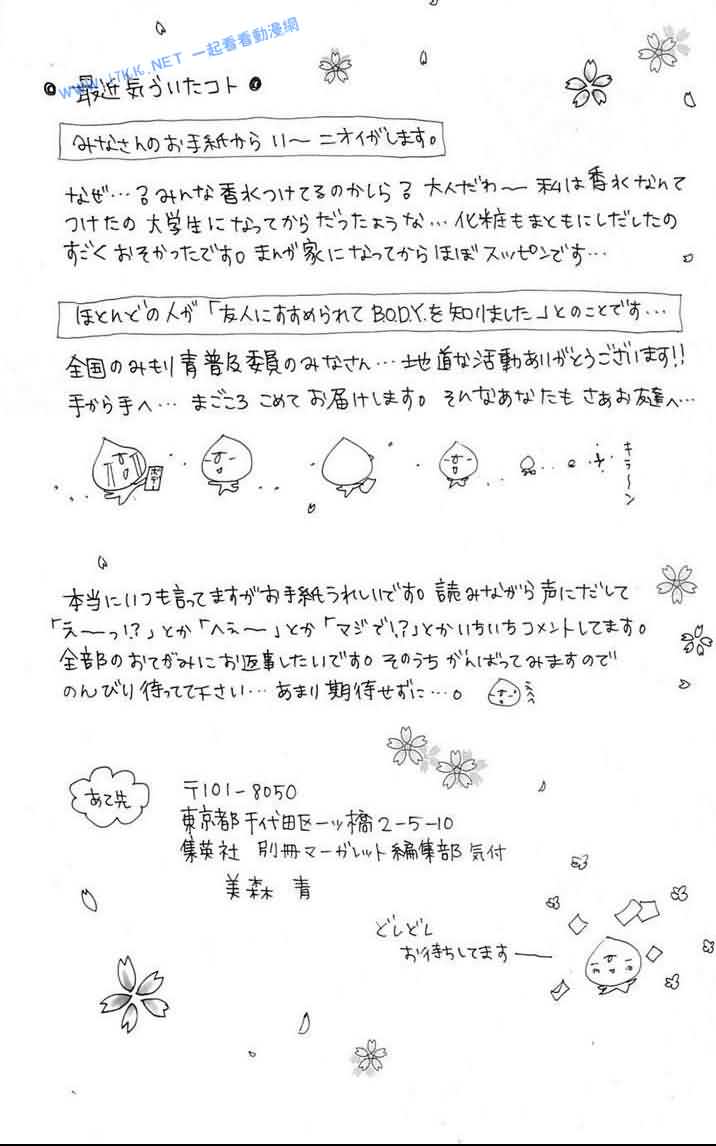 WWW.17KK.NET 一起看看動漫網
最近気づいたコト
みなさんのお手紙から いーニオイがします。
なぜ…?みんな香水つけてるのかしら?大人だわ〜 私は香水なんて
つけたの大学生になってからだったような…化粧もまともにしだしたの
すごくおそかったです。まんが家になってからほぼスッピンです…
ほとんどの人が「友人にすすめられてB.O.D.Y.を知りました」とのことです…
全国のみもり青普及委員のみなさん…地道な活動ありがとうございます!!
手から手へ… まごころ こめて お届けします。そんなあなたも さあお友達へ…
キラーン
本当にいつも言ってますがお手紙うれしいです。読みながら声にだして
「えーっ!?」とか「へぇ〜」とか「マジで!?」とかいちいちコメントしてます。
全部のおてがみにお返事したいです。そのうち がんばってみますので
のんびり待ってて下さい… あまり期待せずに…。
あて先
〒101-8050
東京都千代田区一ッ橋2-5-10
集英社 別冊マーガレット編集部気付
美森 青
どしどし
お待ちしてます——